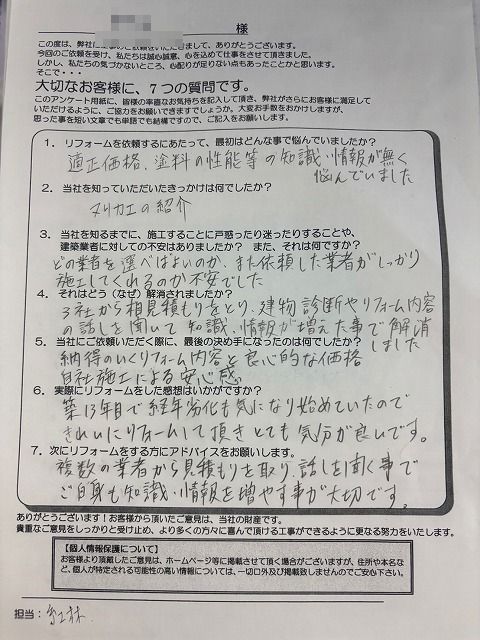 様
この度は、弊社に工事のご依頼をいただきまして、ありがとうございます。
今回のご依頼を受け、私たちは誠心誠意、心を込めて仕事をさせて頂きました。
しかし、私たちの気づかないところ、心配りが足りない点もあったことかと思います。
そこで・・・
大切なお客様に、7つの質問です。
このアンケート用紙に、皆様の率直なお気持ちを記入して頂き、弊社がさらにお客様に満足して
いただけるように、ご協力をお願いできますでしょうか。大変お手数をおかけしますが、
思った事を短い文章でも単語でも結構ですので、ご記入をお願いします。
1．リフォームを依頼するにあたって、最初はどんな事で悩んでいましたか？
適正価格、塗料の性能等の知識・情報が無く
悩んでいました
2．当社を知っていただいたきっかけは何でしたか？
ヌリカエの紹介
3．当社を知るまでに、施工することに戸惑ったり迷ったりすることや、
建築業者に対しての不安はありましたか？ また、それは何ですか？
どの業者を選べばよいのか、また依頼した業者がしっかり
施工してくれるのか不安でした
4．それはどう（なぜ）解消されましたか？
3社から相見積もりをとり、建物診断やリフォーム内容
の話しを聞いて知識、情報が増えた事で解消
しました
5．当社にご依頼いただく際に、最後の決め手になったのは何でしたか？
納得のいくリフォーム内容と良心的な価格
自社施工による安心感
6．実際にリフォームをした感想はいかがですか？
築13年目で経年劣化も気になり始めていたので
きれいにリフォームして頂きとても気分が良いです。
7．次にリフォームをする方にアドバイスをお願いします。
複数の業者から見積もりを取り話しを聞く事で
ご自身も知識・情報を増やす事が大切です。
ありがとうございます！お客様から頂いたご意見は、当社の財産です。
貴重なご意見をしっかりと受け止め、より多くの方々に喜んで頂ける工事ができるように更なる努力をいたします。
【個人情報保護について】
お客様より頂戴したご意見は、ホームページ等に掲載させて頂く場合がございますが、住所や本名な
ど、個人が特定される可能性の高い情報については、一切口外及び掲載致しませんのでご安心下さい。
担当：